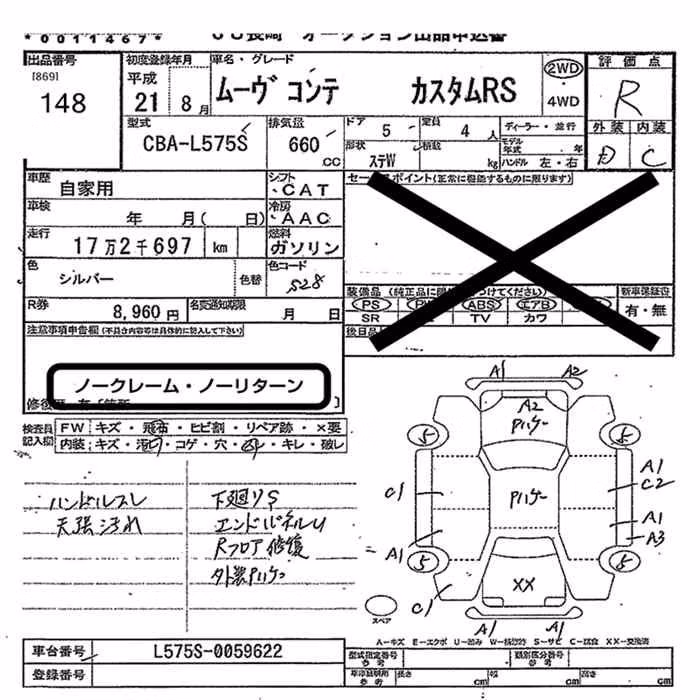 *0011467*
JU長崎 オークション出品申込書
出品番号
[869]
148
初度登録年月
平成
21年 8月
車名・グレード
ムーヴ コンテ カスタムRS
2WD
・
4WD
評価点
R
外装 内装
D C
型式
CBA-L575S
排気量
660
CC
ドア 5
定員 4人
ディーラー・並行
形状
ステW
積数
kg
モデル年式 年
ハンドル 左・右
車歴
自家用
シフト
CAT
車検
年 月( 日)
冷房
AAC
走行
17万2千697 km
燃料
ガソリン
色
シルバー
色替
色コード
S28
R券
8,960円
名変通知期限
月 日
セールスポイント(正常に機能するものに限ります)
装備品 (純正品に限
つけてください)
新車保証書
PS
ABS エアB
有・無
SR TV カワ
後日品
注意事項申告欄(不具合内容等は具体的に記入して下さい)
ノークレーム・ノーリターン
修復歴 有
検査員
記入欄
FW キズ・飛石・ヒビ割・リペア跡・×要
内装 キズ・汚れ・コゲ・穴・凹・キレ・破レ
ハンドルスレ
天張汚れ
下廻りS
エンドパネルU
Rフロア修復
外装Pハゲ
A1 A2
A2
Pハゲ
5 5
C1
Pハゲ
A1
C2
A1
A3
A1
5 5
XX
C1
A1 A1
スペア
A-キズ E-エクボ U-凹み W-補修跡 S-サビ C-腐食 XX-交換済
車台番号
L575S-0059622
登録番号
型式指定番号
参考
類別区分番号
参考
車庫証明用
参考
長さ cm
幅 cm
高さ cm